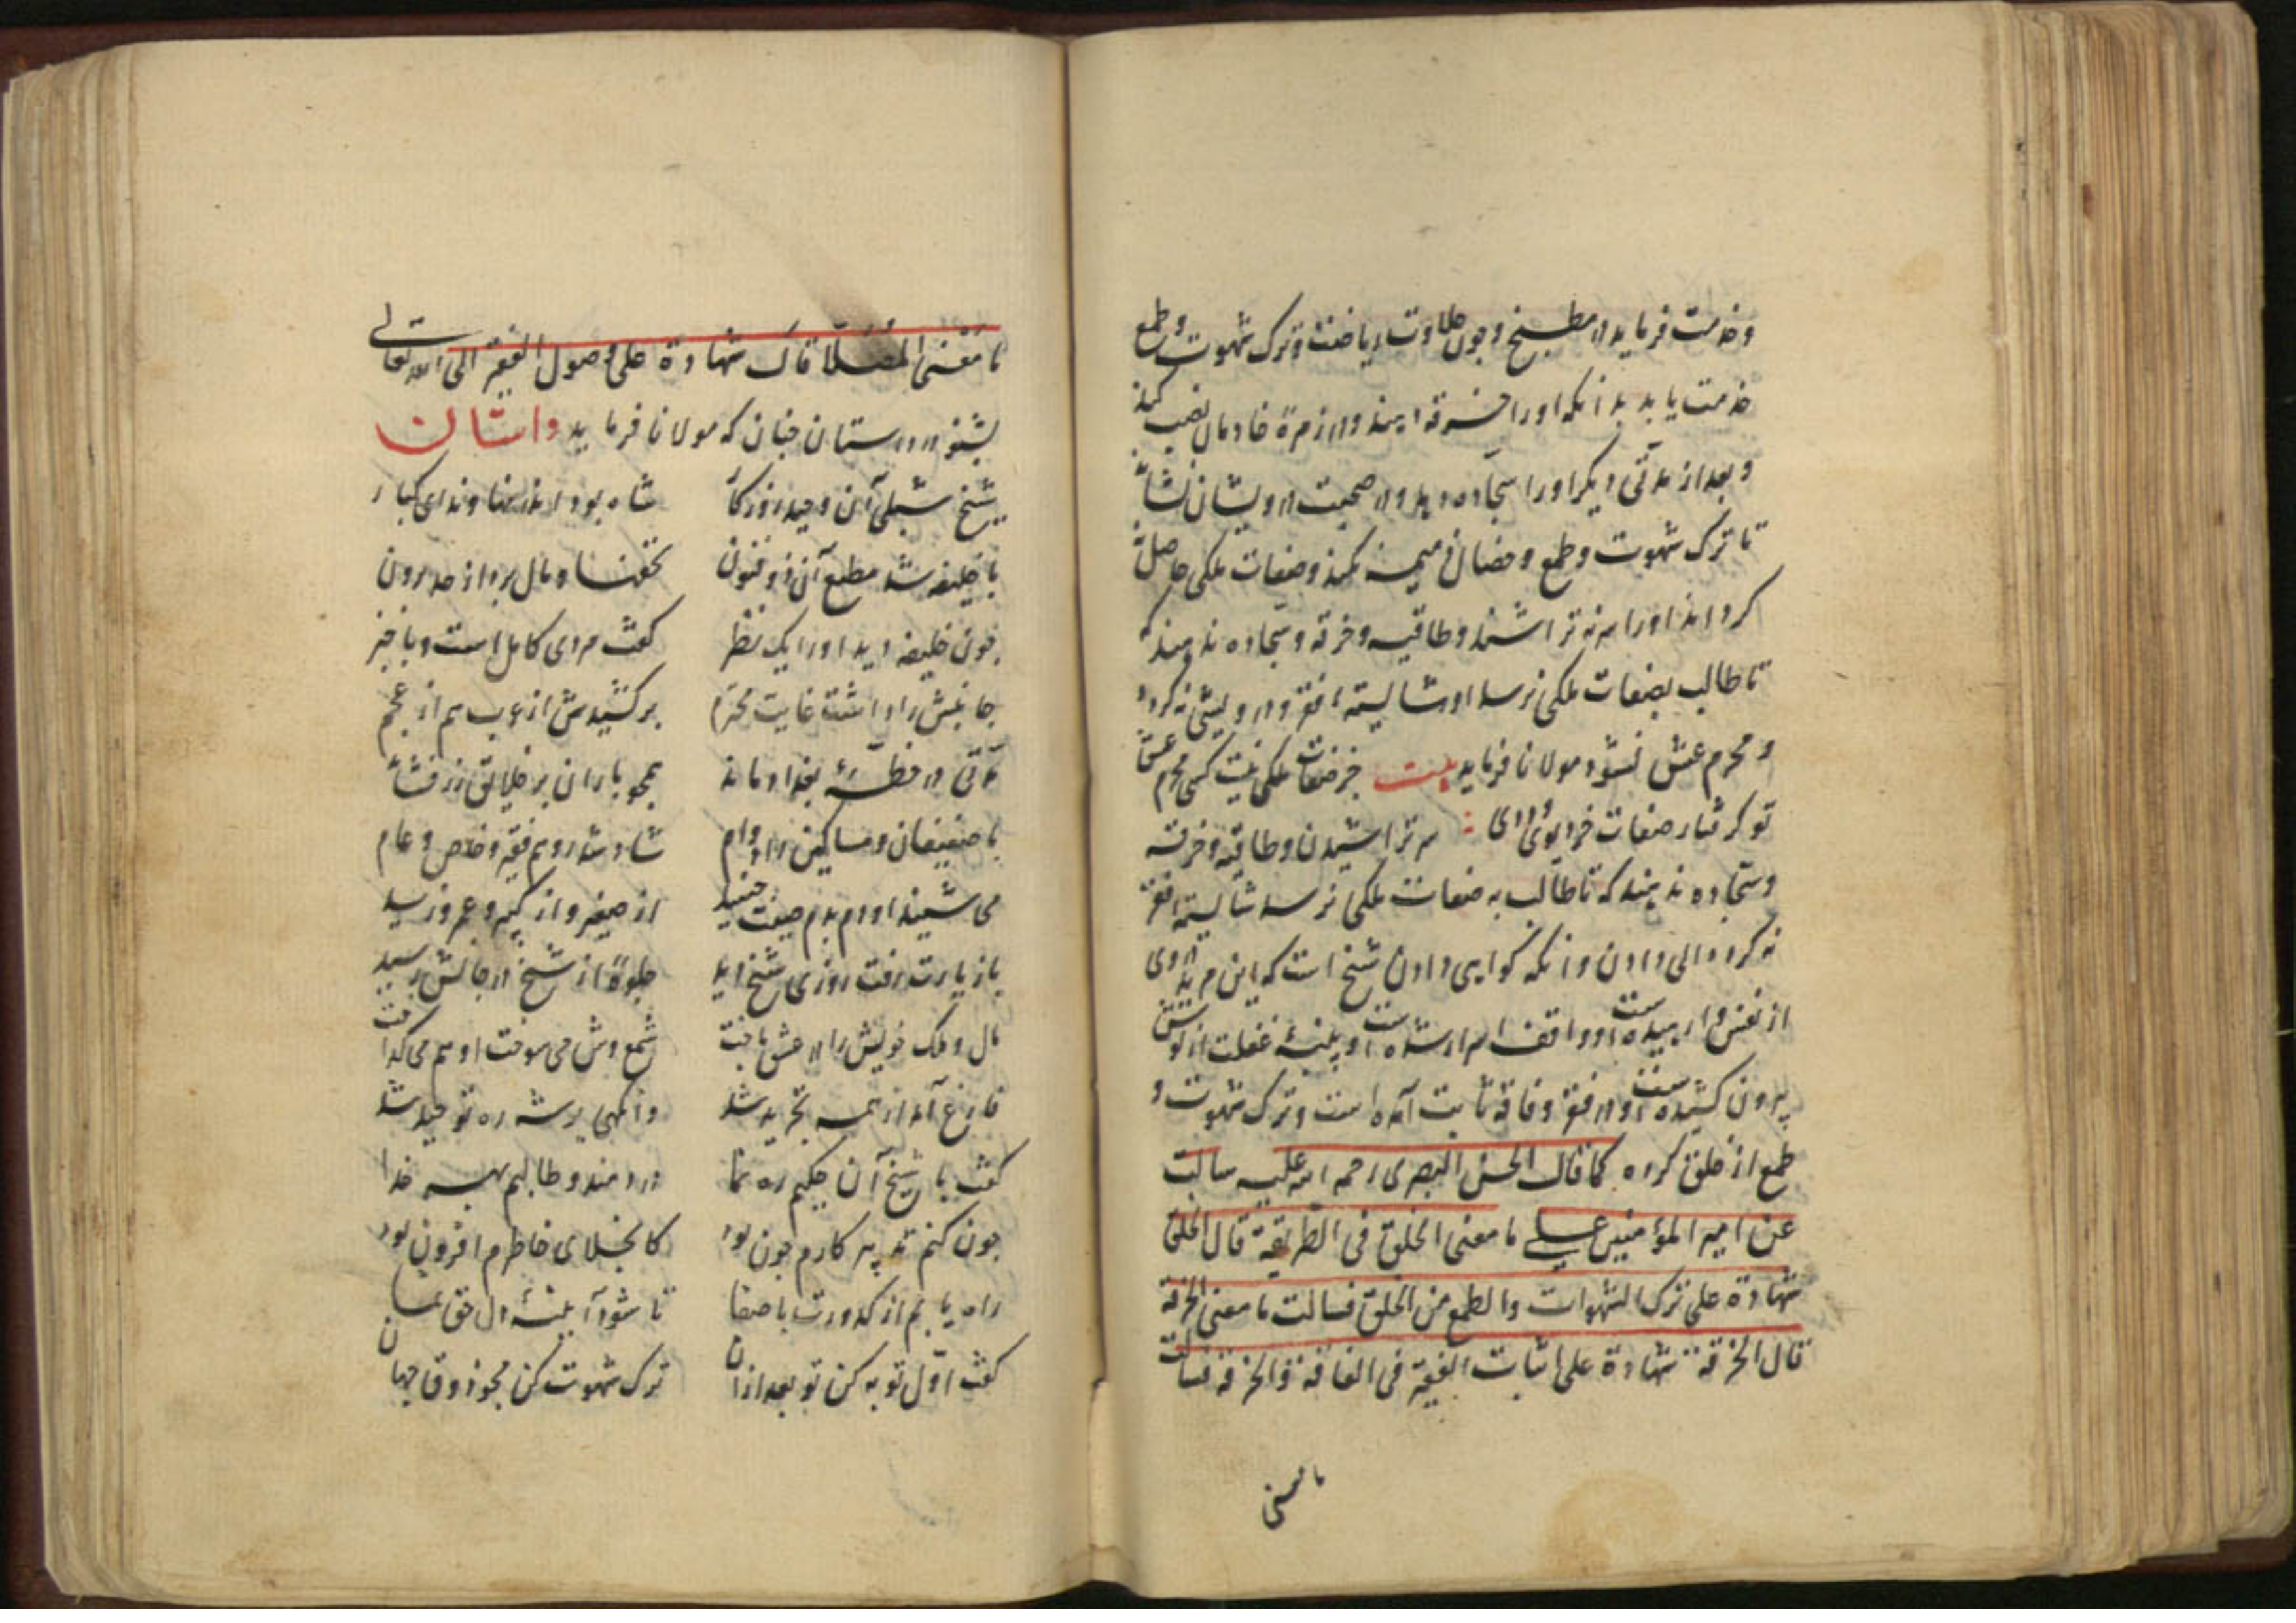 وخدمت فرماید در مطبخ وچون حلاوت ریاضت وترک شهوت وطمع
خدمت یابد بدانکه اورا خرقه دهند ودر زمرۀ خادمان نصب کنند
وبعد از مدتی دیکر اورا سجاده دهد ودر صحبت درویشان نشاند
تا ترک شهوت وطمع وخصال ذمیمه نکند وصفات ملکی حاصل
کرداند اورا سر نه تراشند وطاقیه وخرقه وسجاده ندهند که
تا طالب بصفات ملکی نرسد او شایستۀ فقر ودرویشی نه کردد
ومحرم عشق نشود مولانا فرماید بیت جز صفات ملکی نیست کسی محرم عشق
تو کرفتار صفات خر ودیوی ددی سر تراشیدن وطاقیه وخرقه
وسجاده ندهند که تا طالب به صفات ملکی نرسد شایستۀ فقر
نه کردد دادن وانکه کواهی دادن شیخ است که این مرید
از نفس وا رهیده است او واقف اسرار شده است او پنبۀ غفلت از کوش
بیرون کشیده است او در فقر وفاقه ثابت آمده است وترک شهوت و
طمع از خلق کرده کما قال الحسن البصری رحمه الله علیه سالت
عن امیر المؤمنین علی ما معنی الحلق فی الطریقة قال الحلق
شهادة علی ترک الشهوات والطمع من الخلق فسالت ما معنی الخرقة
قال الخرقة شهادة علی اثبات الفقیر فی الفاقة والخرقة فسالت
ما معنی
ما معنی المصلا قال شهادة علی وصول الفقیر الی الله تعالی
بشنو در داستان چنان که مولانا فرماید داستان
شیخ شبلی آن وحید روزکار شاه بود اندر نهاوند ای کبار
با خلیفه شد مطیع آن ذو فنون تحفها ومال برد از حد برون
چون خلیفه دید اورا یک نظر کفت مردی کامل است وبا خبر
جانبش را داشت غایت محترم برکشیدش از عرب هم از عجم
مدتی در خطۀ بغداد ماند همچو باران بر خلایق زر فشاند
با ضعیفان ومساکین داد وام شاد شد زو هم فقیر وخاص وعام
می شنید او دم بدم صیت جنید از صغیر واز کبیر وعمرو وزید
باز زیارت رفت روزی شیخ دید جلوۀ از شیخ در جانش رسید
مال وملک خویش را در عشق باخت شمع وش می سوخت او هم می کداخت
فارغ آمد از همه تجرید شد وانکهی در ره توحید شد
کفت با شیخ آن حکیم ره نما دردمند وطالبم بهر خدا
چون کنم تدبیر کارم چون بود کانجلای خاطرم افزون بود
راه یابم از کدورت با صفا تا شود آیینۀ دل حق نما
کفت اول توبه کن تو بعد ازان ترک شهوت کن مجو ذوق جهان